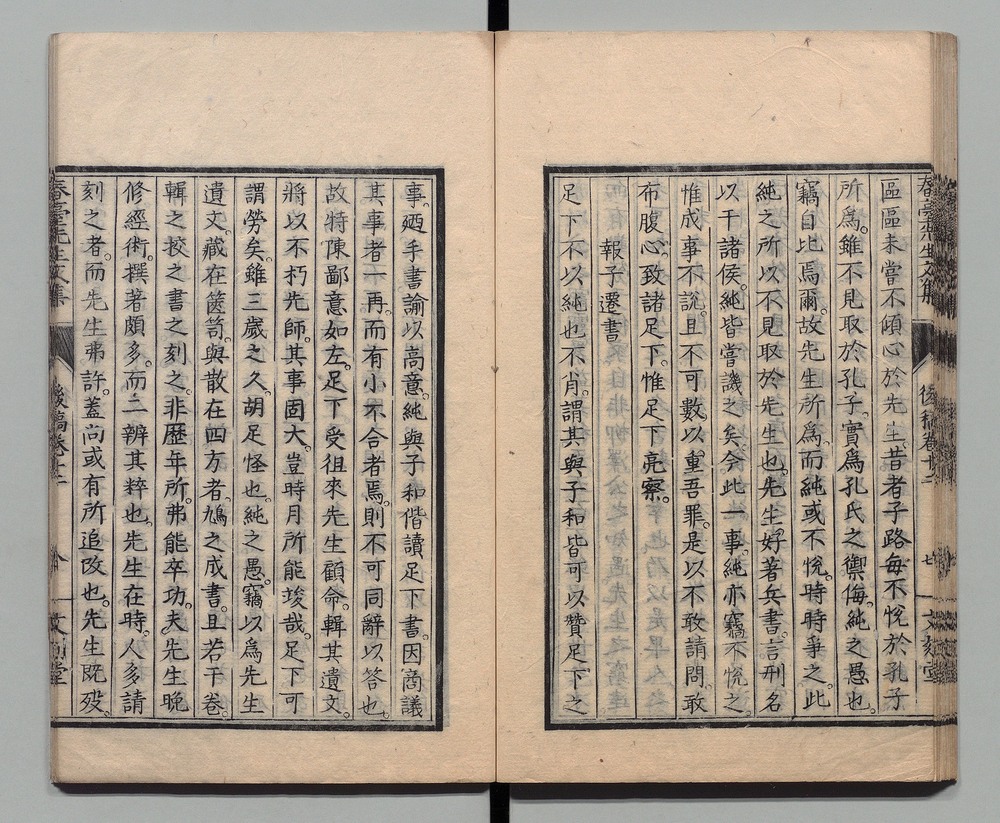 區區未嘗不傾心於先生。昔者子路每不悅於孔子
所爲。雖不見取於孔子。實爲孔氏之禦侮。純之愚也。
竊自比焉爾。故先生所爲。而純或不悅。時時爭之。此
純之所以不見取於先生也。先生好著兵書。言刑名
以干諸侯。純皆嘗譏之矣。今此一事。純亦竊不悅之。
惟成事不說。且不可數。以重吾罪。是以不敢請問。敢
布腹心。致諸足下。惟足下亮察。
報子遷書
足下不以純也不肖。謂其與子和皆可以贊足下之
春臺先生文集
後稿卷十二
七
文刻堂
事。廼手書諭以高意。純與子和偕讀足下書。因商議
其事者一再。而有小不合者焉。則不可同辭以答也。
故特陳鄙意如左。足下受徂來先生顧命。輯其遺文。
將以不朽先師。其事固大。豈時月所能竣哉。足下可
謂勞矣。雖三歲之久。胡足怪也。純之愚。竊以爲先生
遺文。藏在篋笥。與散在四方者。鳩之成書。且若干卷。
輯之挍之書之刻之。非歷年所。弗能卒功。夫先生晚
修經術。撰著頗多。而二辨其粹也。先生在時。人多請
刻之者。而先生弗許。蓋尚或有所追改也。先生既歿。
春臺先生文集
後稿卷十二